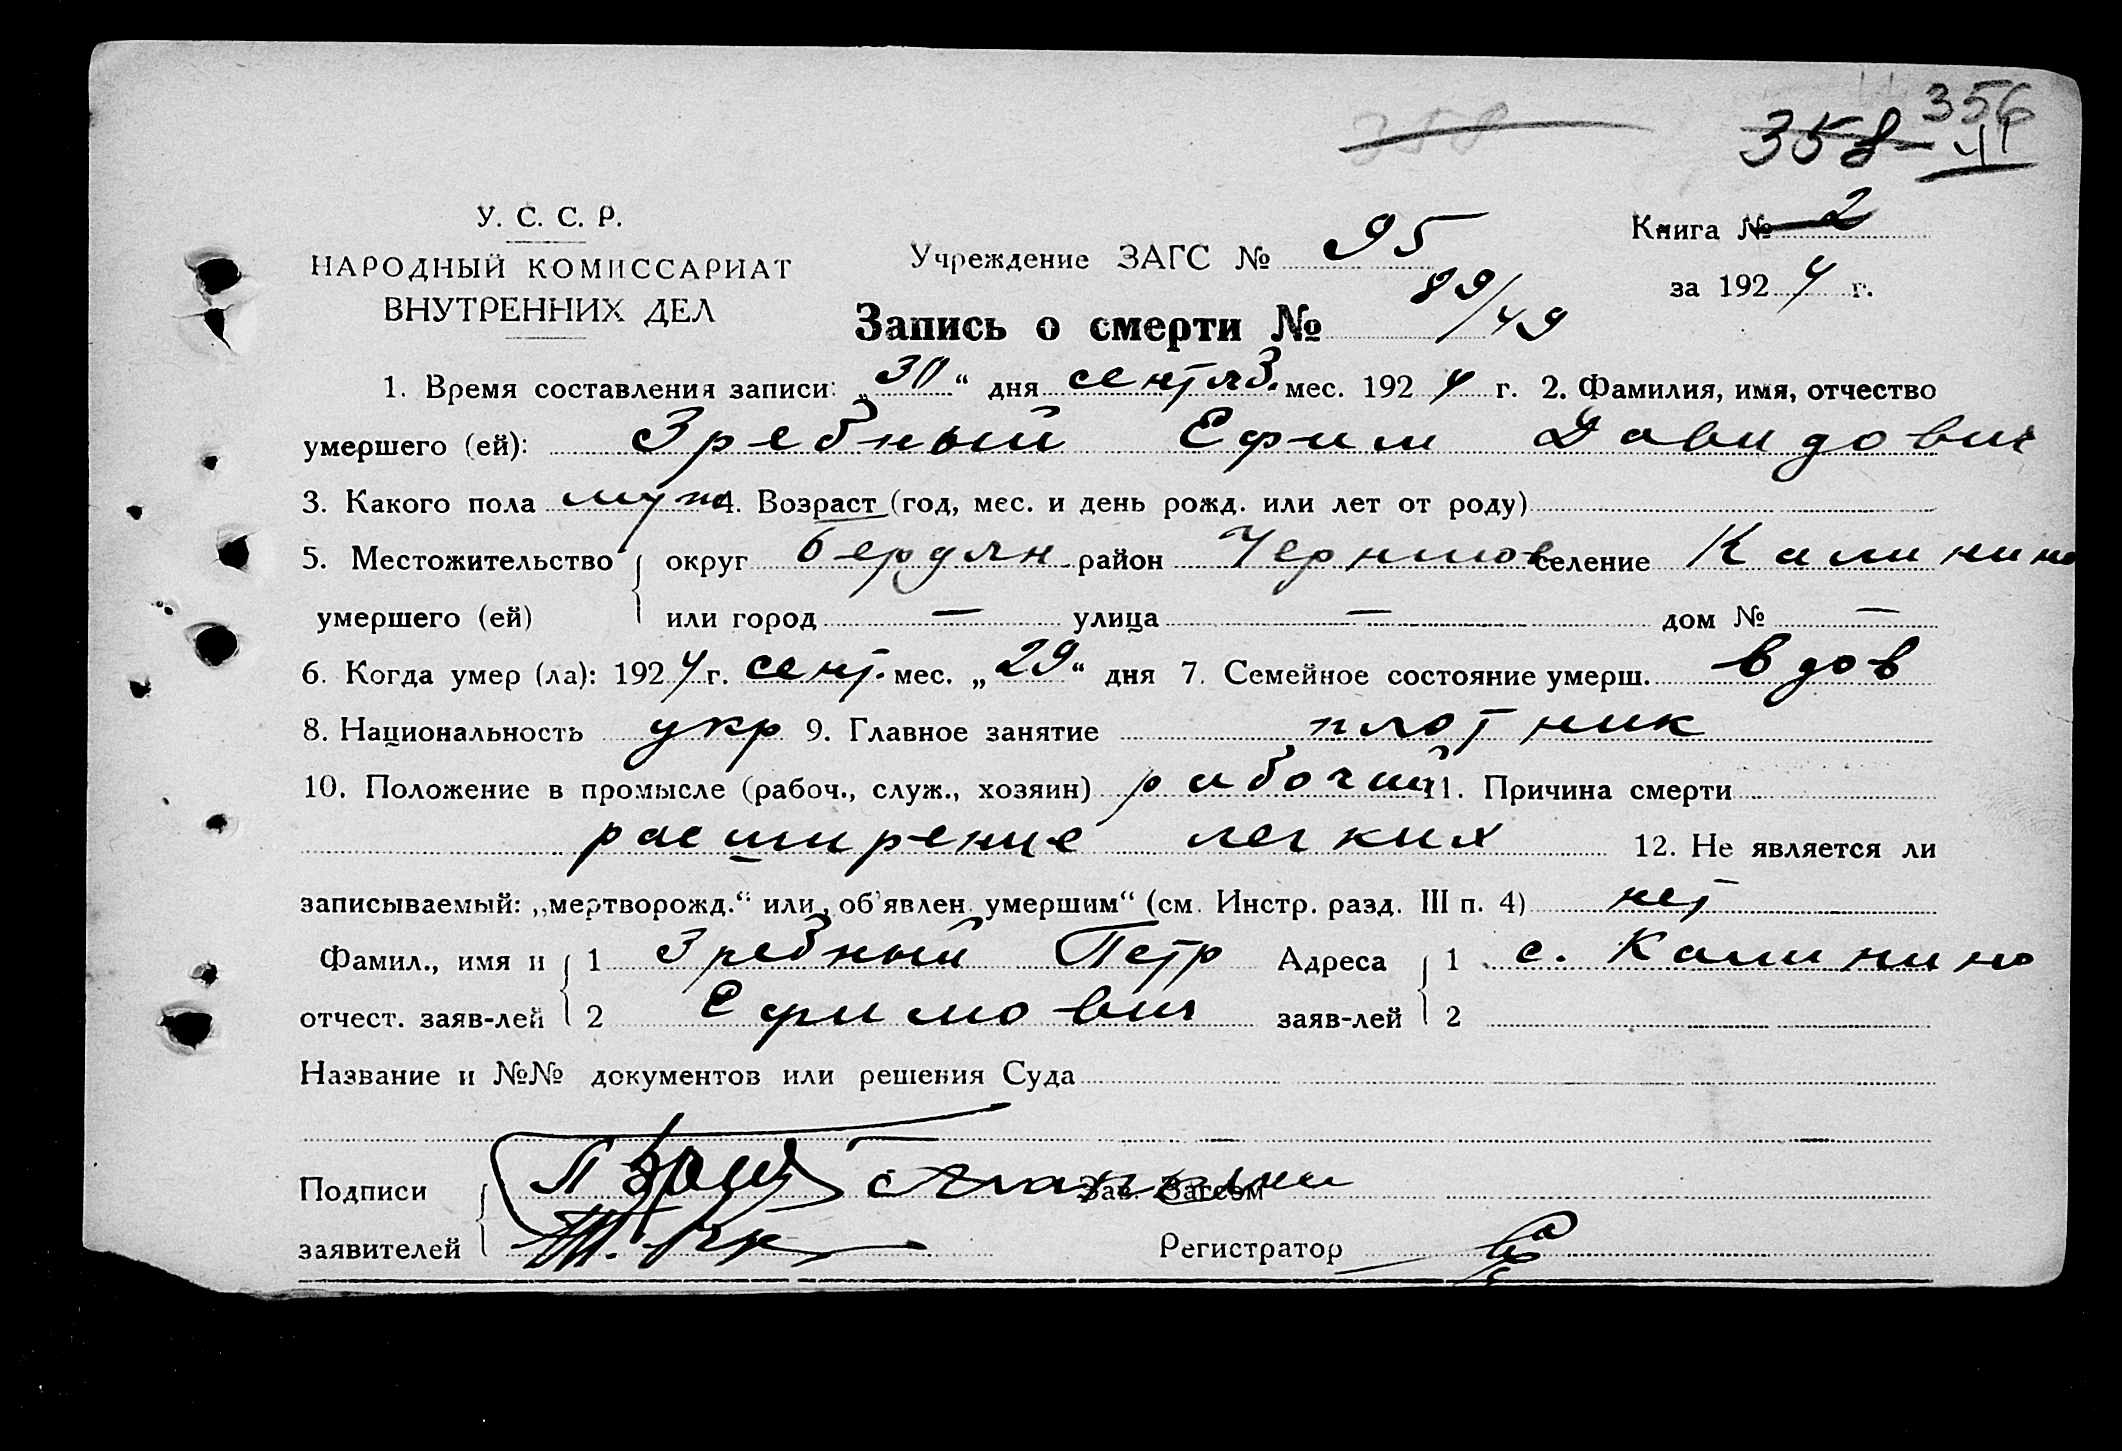 356
358
358 41
У. С. С. Р.
НАРОДНЫЙ КОМИССАРИАТ
ВНУТРЕННИХ ДЕЛ
Учреждение ЗАГС № 95
Книга № 2
за 1924 г.
Запись о смерти № 89/49
1. Время составления записи: „30“ дня сентяб. мес. 1924 г. 2. Фамилия, имя, отчество
умершего (ей): Зребный Ефим Давидович
3. Какого пола муж 4. Возраст (год, мес. и день рожд. или лет от роду)
5. Местожительство округ Бердян район Черниговс селение Калинино
умершего (ей) или город — улица — дом № —
6. Когда умер (ла): 1924 г. сент. мес. „29“ дня 7. Семейное состояние умерш. вдов
8. Национальность укр 9. Главное занятие плотник
10. Положение в промысле (рабоч., служ., хозяин) рабочий 11. Причина смерти
расширение легких 12. Не является ли
записываемый: „мертворожд.“ или „об'явлен. умершим“ (см. Инстр. разд. III п. 4) нет
Фамил., имя и 1 Зребный Петр Адреса 1 с. Калинино
отчест. заяв-лей 2 Ефимович заяв-лей 2
Название и №№ документов или решения Суда
Подписи Зав. Загсом
заявителей Регистратор